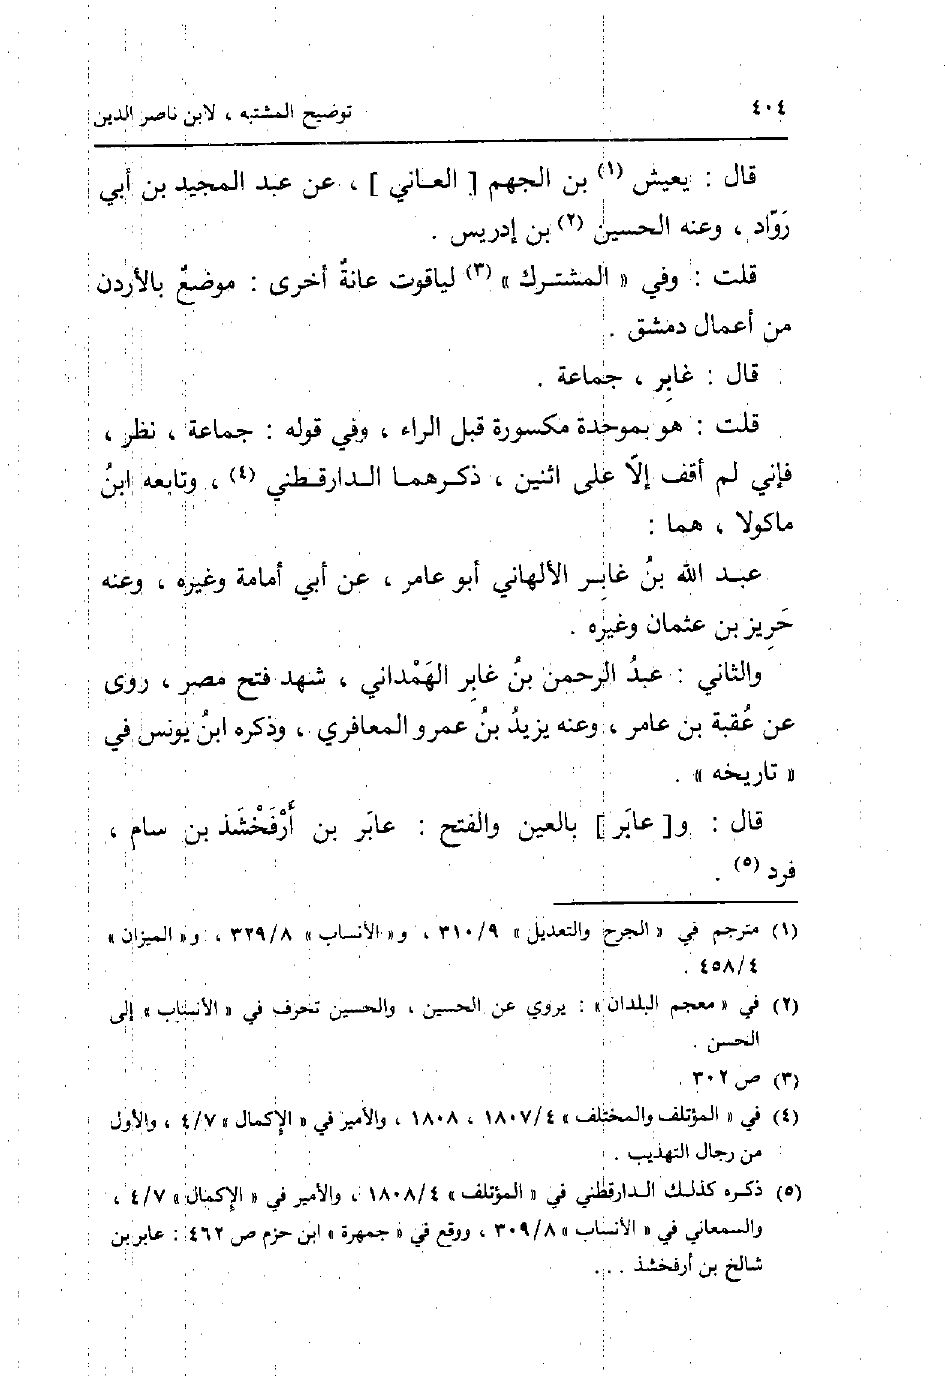 ٤٠٤ توضيح المشتبه ، لابن ناصر الدين
قال : يعيش (١) بن الجهم [ العـاني ] ، عن عبد المجيد بن أبي
رَوّاد ، وعنه الحسين (٢) بن إدريس .
قلت : وفي « المشترك » (٣) لياقوت عانةٌ أخرى : موضعٌ بالأردن
من أعمال دمشق .
قال : غابِر ، جماعة .
قلت : هو بموحدة مكسورة قبل الراء ، وفي قوله : جماعة ، نظر ،
فإني لم أقف إلّا على اثنين ، ذكرهما الدارقطني (٤) ، وتابعه ابنُ
ماكولا ، هما :
عبد الله بنُ غابر الألهاني أبو عامر ، عن أبي أمامة وغيره ، وعنه
حَرِيز بن عثمان وغيره .
والثاني : عبدُ الرحمن بنُ غابِر الهَمْداني ، شهد فتح مصر ، روى
عن عُقبة بن عامر ، وعنه يزيدُ بنُ عمرو المعافري ، وذكره ابنُ يونس في
« تاريخه » .
قال : و[ عابَر ] بالعين والفتح : عابَر بن أَرْفَخْشَذ بن سام ،
فرد (٥) .
(١) مترجم في « الجرح والتعديل » ٣١٠/٩ ، و« الأنساب » ٣٢٩/٨ ، و« الميزان »
٤٥٨/٤ .
(٢) في « معجم البلدان » : يروي عن الحسين ، والحسين تحرف في « الأنساب » إلى
الحسن .
(٣) ص ٣٠٢ .
(٤) في « المؤتلف والمختلف » ١٨٠٧/٤ ، ١٨٠٨ ، والأمير في « الإكمال » ٤/٧ ، والأول
من رجال التهذيب .
(٥) ذكره كذلك الدارقطني في « المؤتلف » ١٨٠٨/٤ ، والأمير في « الإكمال » ٤/٧ ،
والسمعاني في « الأنساب » ٣٠٩/٨ ، ووقع في « جمهرة » ابن حزم ص ٤٦٢ : عابر بن
شالخ بن أرفخشذ . . .